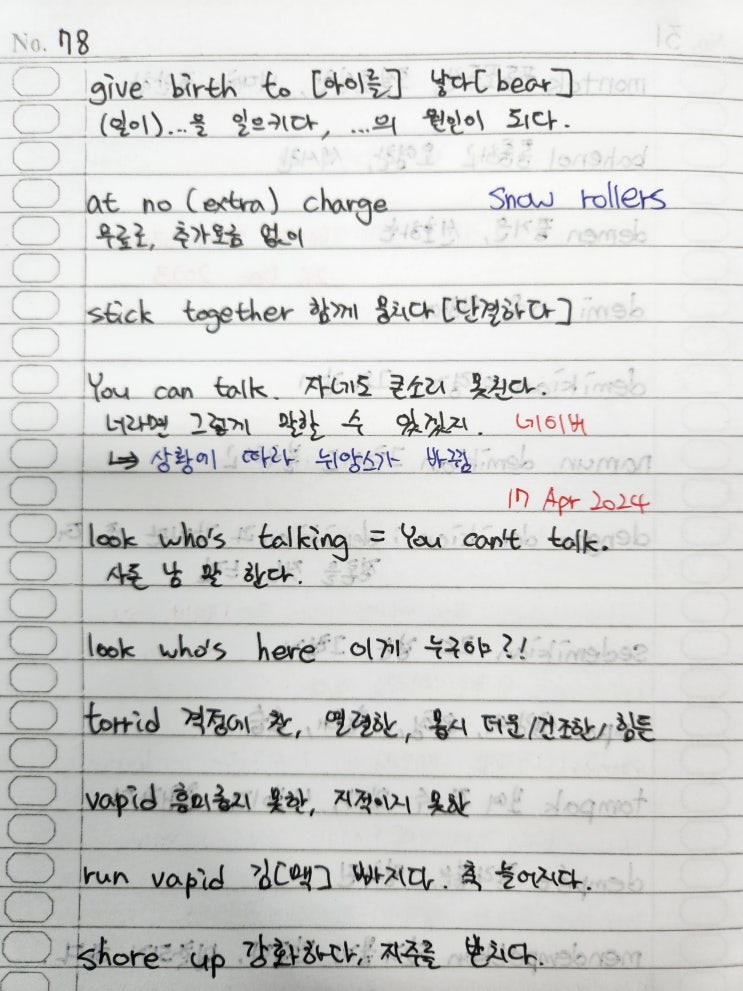 No. 78
give birth to [아이를] 낳다[bear]
(일이)...을 일으키다, ...의 원인이 되다.
at no (extra) charge Snow rollers
무료로, 추가요금 없이
stick together 함께 뭉치다 [단결하다]
You can talk. 자네도 큰소리 못친다.
너라면 그렇게 말할 수 있겠지. 네이버
↳ 상황에 따라 뉘앙스가 바뀜
17 Apr 2024
look who's talking = You can't talk.
사돈 남 말 한다.
look who's here 이게 누구야?!
torrid 격정에 찬, 열렬한, 몹시 더운/건조한/힘든
vapid 흥미롭지 못한, 지적이지 못한
run vapid 김[맥] 빠지다. 축 늘어지다.
shore up 강화하다, 지주를 받치다.